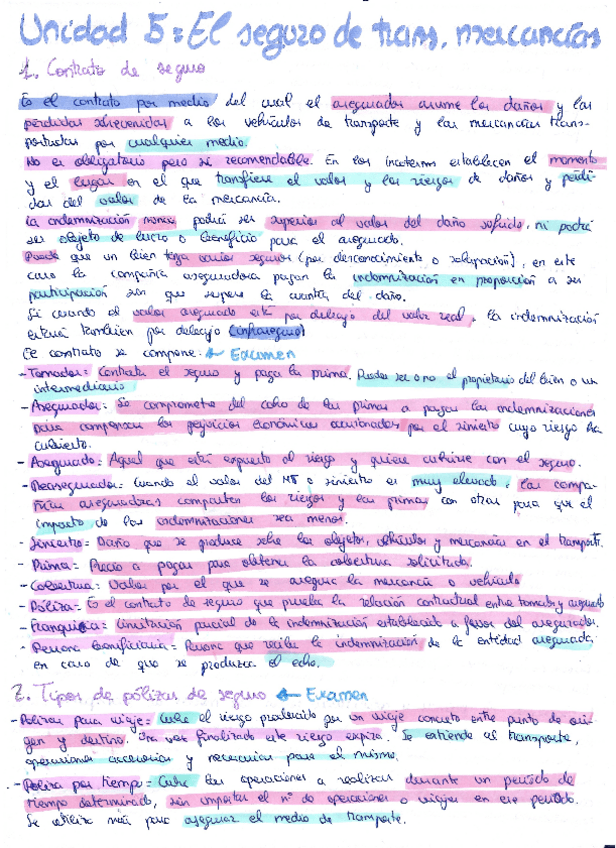 Unidad 5: El seguro de trans. mercancías
1. Contrato de seguro
Es el contrato por medio del cual el asegurador asume los daños y las
pérdidas sobrevenidas a los vehículos de transporte y las mercancías trans-
portadas por cualquier medio.
No es obligatorio pero sí recomendable. En los incoterms establecen el momento
y el lugar en el que transfiere el valor y los riesgos de daños y pérdi-
das del valor de la mercancía.
La indemnización nunca podrá ser superior al valor del daño sufrido, ni podrá
ser objeto de lucro o beneficio para el asegurado.
Puede que un bien tenga varios seguros (por desconocimiento o), en este
caso la compañía aseguradora pagan la indemnización en proporción a su
participación sin que supere la cuantía del daño.
Si cuando el valor asegurado está por debajo del valor real, la indemnización
estará también por debajo (infraseguro)
Ee contrato se compone: ← Examen
- Tomador: Contrata el seguro y paga la prima. Puede ser o no el propietario del bien o un
intermediario
- Asegurador: Se compromete del cobro de las primas a pagar las indemnizaciones
para compensar los perjuicios económicos ocasionados por el siniestro cuyo riesgo ha
cubierto.
- Asegurado: Aquel que está expuesto al riesgo y quiere cubrirse con el seguro.
- Reasegurador: Cuando el valor del MT o siniestro es muy elevado, las compa-
ñías aseguradoras comparten los riesgos y las primas con otras para que el
impacto de las indemnizaciones sea menor.
- Siniestro: Daño que se produce sobre los objetos, vehículos y mercancía en el transporte.
- Prima: Precio a pagar para obtener la cobertura solicitada.
- Cobertura: Valor por el que se asegura la mercancía o vehículo
- Póliza: Es el contrato de seguro que prueba la relación contractual entre tomador y asegurado
- Franquicia: Limitación parcial de la indemnización establecida a favor del asegurador.
- Persona beneficiaria: Persona que recibe la indemnización de la entidad asegurada,
en caso de que se produzca el echo.
2. Tipos de pólizas de seguro ← Examen
- Polizas para viaje: Cubre el riesgo producido por un viaje concreto entre punto de ori-
gen y destino. Una vez finalizado este riesgo expira. Se extiende al transporte,
operaciones accesorias y necesarias para el mismo.
- Poliza por tiempo: Cubre las operaciones a realizar durante un período de
tiempo determinado, sin importar el nº de operaciones o viajes en ese período.
Se utiliza más para asegurar el medio de transporte.